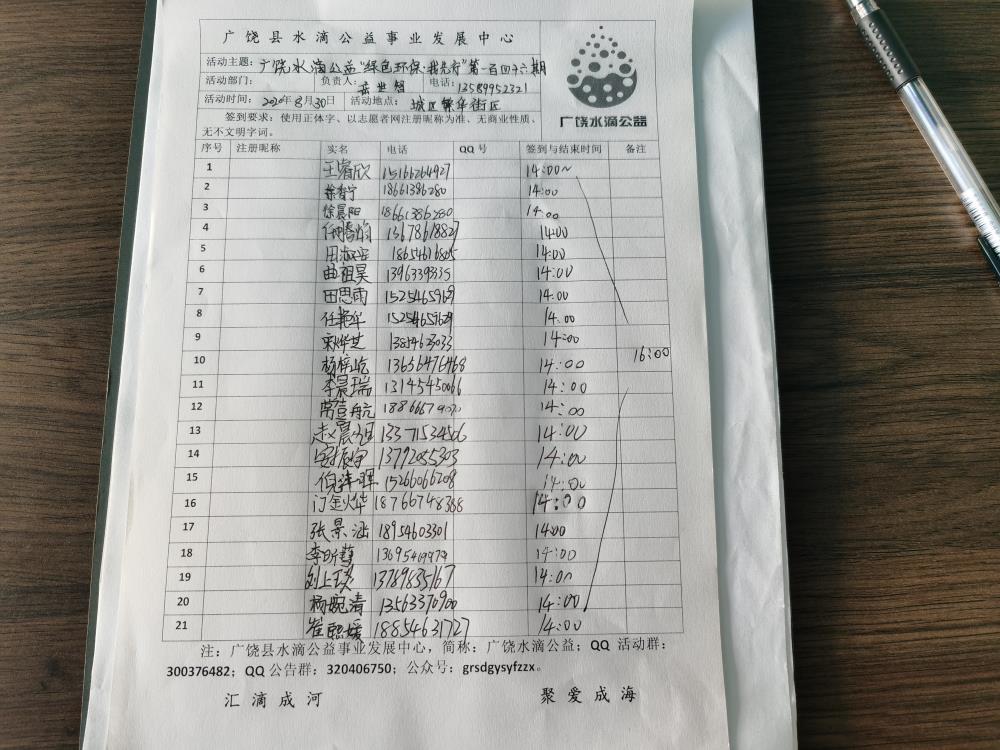 广饶县水滴公益事业发展中心
活动主题：广饶水滴公益"绿色环保·我先行"第一百四十六期
活动部门： 负责人： 电话：13589952321
活动时间：2020年8月30日 活动地点：城区繁华街区
签到要求：使用正体字、以志愿者网注册昵称为准、无商业性质、
无不文明字词。
广饶水滴公益
序号 注册昵称 实名 电话 QQ号 签到与结束时间 备注
1 王睿欣 15166264927 14:00~
2 18661386280 14:00
3 徐晨阳 18661386280 14:00
4 13678618827 14:00
5 14:00
6 曲祖昊 1396339335 14:00
7 田思雨 15254659629 14:00
8 任艳华 15254659629 14:00
9 14:00
10 13656476468 14:00
16:00
11 李晨瑞 13145450066 14:00
12 14:00
13 13371534506 14:00
14 13792085303 14:00
15 15266066208 14:00
16 门金火华 18766748388 14:00
17 张景涵 18954603301 14:00
18 14:00
19 13789835167 14:00
20 杨婉清 13563370900 14:00
21 崔熙媛 18854631727 14:00
注：广饶县水滴公益事业发展中心，简称：广饶水滴公益；QQ 活动群：
300376482；QQ公告群：320406750；公众号：grsdgysyfzzx。
汇滴成河 聚爱成海